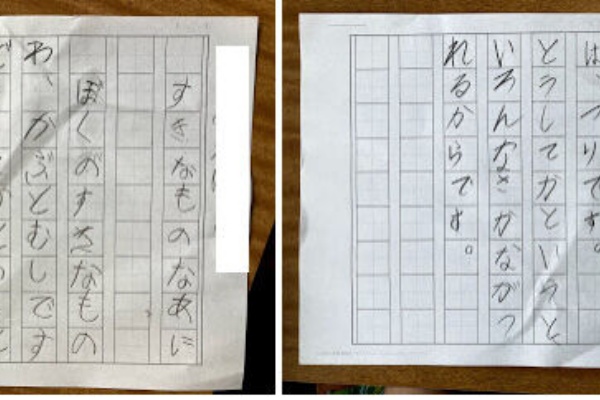 すきなものなあに
ぼくのすきなもの
わ、かぶとむしです
は、つりです。
とうしてかというと
いろんなさかながつ
れるからです。